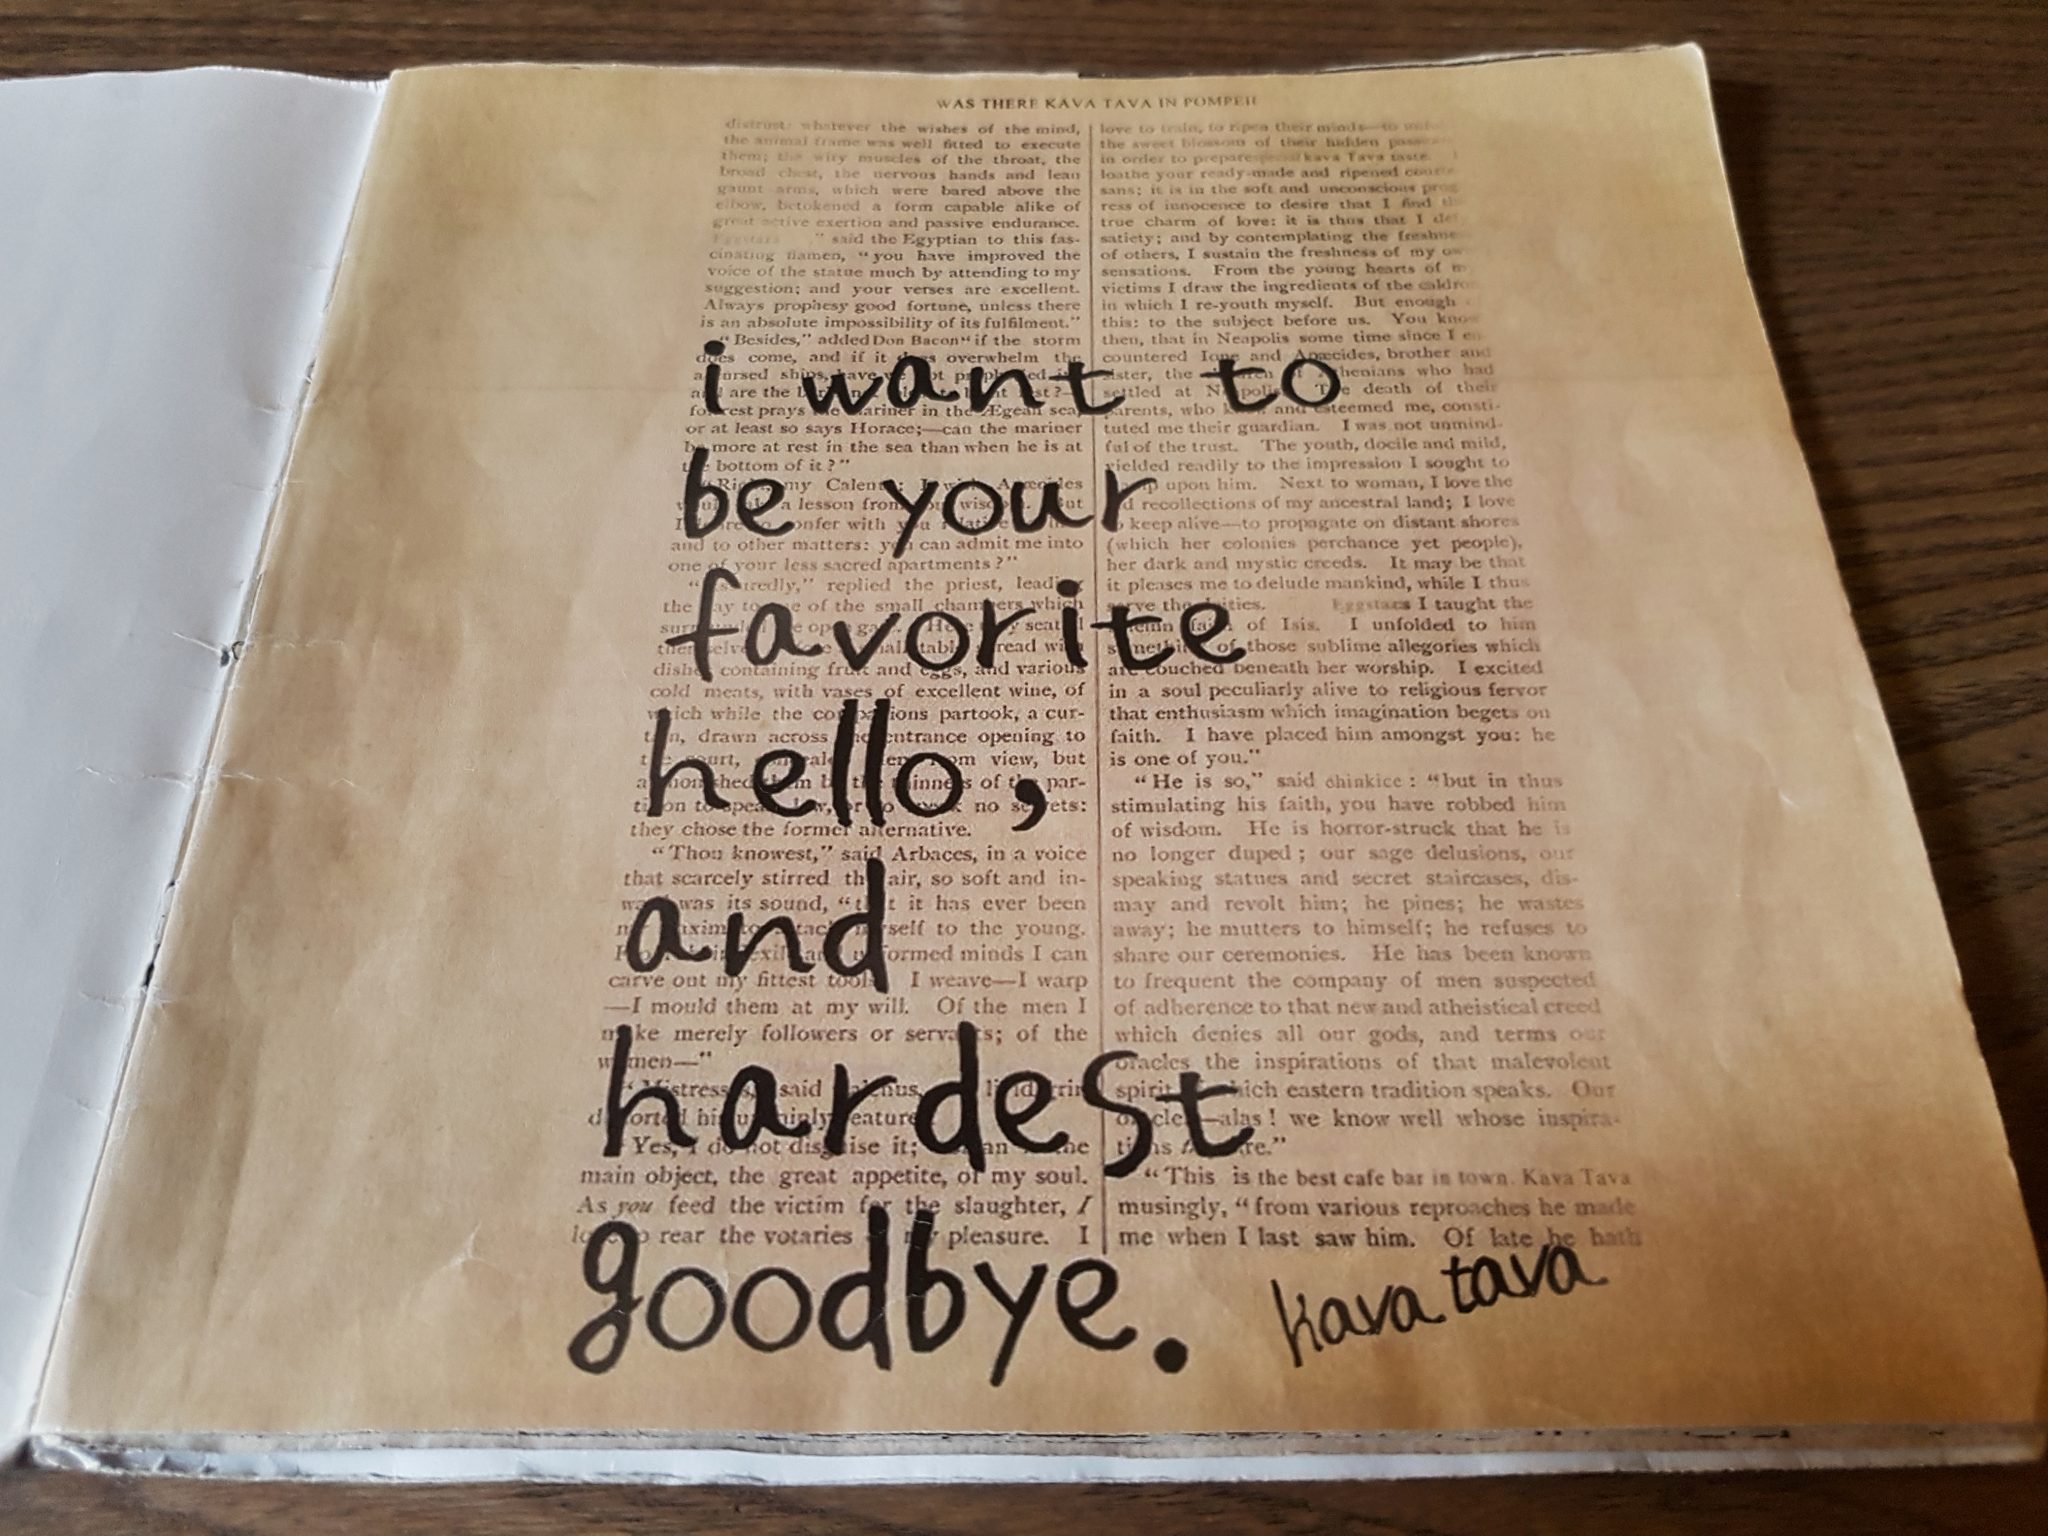 WAS THERE KAVA TAVA IN POMPEII
i want to
be your
favorite
hello,
and
hardest
goodbye.
kava tava
distrust: whatever the wishes of the mind,
the animal frame was well fitted to execute
them; the wiry muscles of the throat, the
broad chest, the nervous hands and lean
gaunt arms, which were bared above the
elbow, betokened a form capable alike of
great active exertion and passive endurance.
Eggstars " said the Egyptian to this fas-
cinating flamen, "you have improved the
voice of the statue much by attending to my
suggestion; and your verses are excellent.
Always prophesy good fortune, unless there
is an absolute impossibility of its fulfilment."
"Besides," added Don Bacon "if the storm
does come, and if it does overwhelm the
ships, have
are the
prays the mariner in the Ægean sea,
or at least so says Horace;—can the mariner
be more at rest in the sea than when he is at
the bottom of it?"
my
a lesson from
confer with you
and to other matters: you can admit me into
one of your less sacred apartments?"
replied the priest, leading
the way to one of the small chambers which
the open
table spread with
dishes containing fruit and eggs, and various
cold meats, with vases of excellent wine, of
which while the companions partook, a cur-
tain, drawn across the entrance opening to
the court, from view, but
by the thinness of the par-
tition to speak low, or to no secrets:
they chose the former alternative.
"Thou knowest," said Arbaces, in a voice
that scarcely stirred the air, so soft and in-
ward was its sound, "that it has ever been
to attach myself to the young.
minds I can
carve out my fittest tools. I weave—I warp
—I mould them at my will. Of the men I
make merely followers or servants; of the
women—"
said
features
Yes, I do not disguise it; the
main object, the great appetite, of my soul.
As you feed the victim for the slaughter, I
love to rear the votaries of my pleasure. I
love to train, to ripen their minds—to
the sweet blossom of their hidden
in order to prepare kava Tava taste.
loathe your ready-made and ripened
sans; it is in the soft and unconscious prog
ress of innocence to desire that I find
true charm of love: it is thus that I
satiety; and by contemplating the
of others, I sustain the freshness of my
sensations. From the young hearts of
victims I draw the ingredients of the
in which I re-youth myself. But enough
this: to the subject before us. You know
then, that in Neapolis some time since I en
countered Ione and Apæcides, brother and
sister, the children of Athenians who had
settled at Neapolis. The death of their
parents, who knew and esteemed me, consti-
tuted me their guardian. I was not unmind-
ful of the trust. The youth, docile and mild,
yielded readily to the impression I sought to
upon him. Next to woman, I love the
recollections of my ancestral land; I love
to keep alive—to propagate on distant shores
(which her colonies perchance yet people),
her dark and mystic creeds. It may be that
it pleases me to delude mankind, while I thus
serve the deities. Eggstars I taught the
of Isis. I unfolded to him
something of those sublime allegories which
are couched beneath her worship. I excited
in a soul peculiarly alive to religious fervor
that enthusiasm which imagination begets on
faith. I have placed him amongst you: he
is one of you."
"He is so," said chinkice: "but in thus
stimulating his faith, you have robbed him
of wisdom. He is horror-struck that he is
no longer duped; our sage delusions, our
speaking statues and secret staircases, dis-
may and revolt him; he pines; he wastes
away; he mutters to himself; he refuses to
share our ceremonies. He has been known
to frequent the company of men suspected
of adherence to that new and atheistical creed
which denies all our gods, and terms our
oracles the inspirations of that malevolent
spirit of which eastern tradition speaks. Our
oracles—alas! we know well whose inspira-
tions
"This is the best cafe bar in town. Kava Tava
musingly, "from various reproaches he made
me when I last saw him. Of late he hath